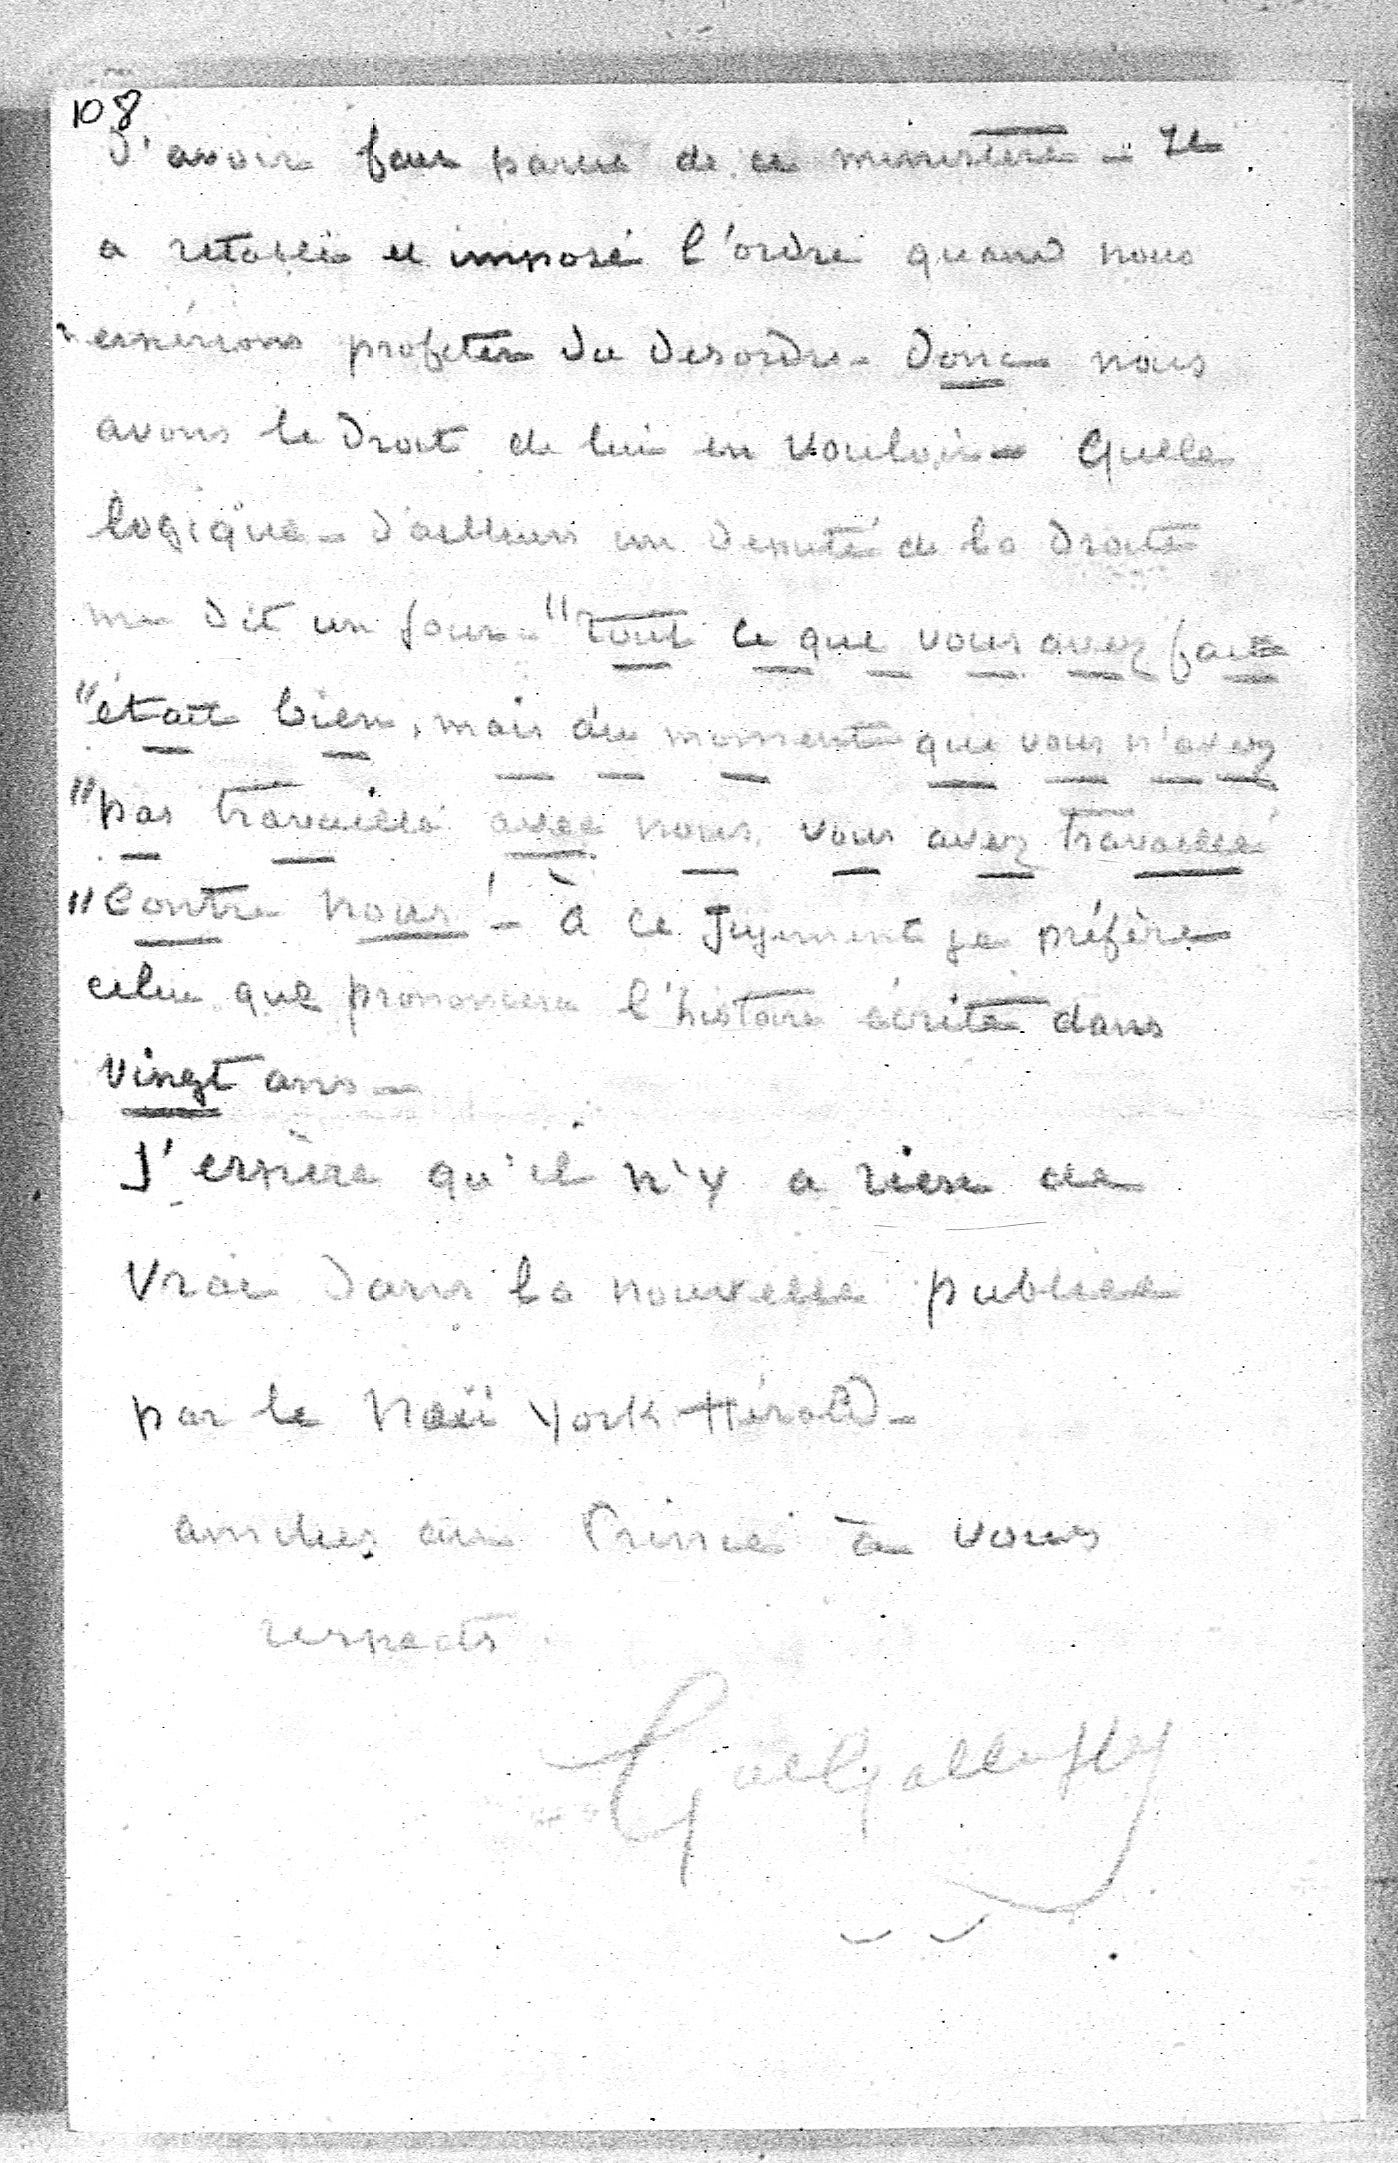 108
d'avoir fait partie de ce ministère - Il
a rétabli et imposé l'ordre quand nous
espérions profiter du desordre - Donc nous
avons le droit de lui en vouloir - Quelle
logique - D'ailleurs un député de la droite
me dit un jour - "Tout ce que vous avez fait
"était bien, mais du moment que vous n'avez
"pas travaillé avec nous, vous avez travaillé
"contre nous" - à ce jugement je préfère
celui que prononcera l'histoire écrite dans
vingt ans -
J'espère qu'il n'y a rien de
vrai dans la nouvelle publiée
par le Neü York Hérald -
amitiés au Prince à vous
respects
Gal Galliffet